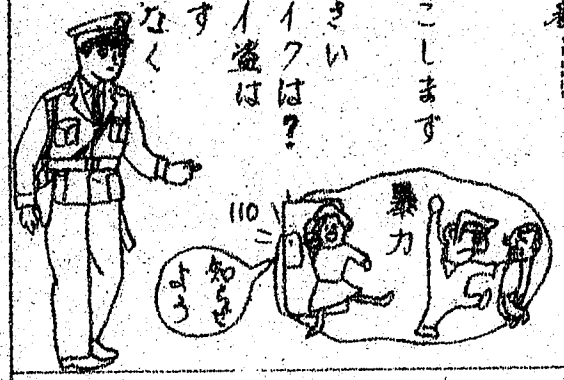 こします
さい
イクは?
イ盗は
ず
なく
暴力
110
知らせ
よう